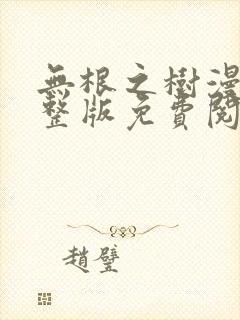 無根之樹漫
整版免費閱
趙璧